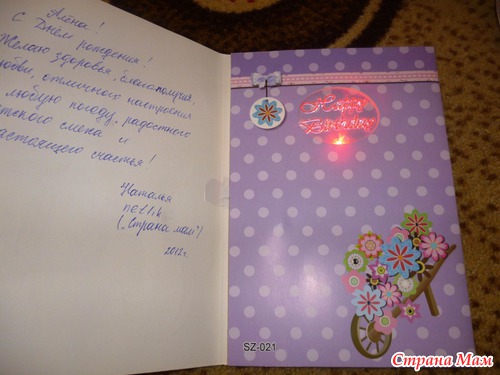 Алёна!
С Днём рождения!
Желаю здоровья, благополучия,
любви, отличного настроения
любую погоду, радостного
детского смеха и
настоящего счастья!
Наталья
netlik
("Страна мам")
2012г.
Happy
Birthday
SZ-021
Страна Мам